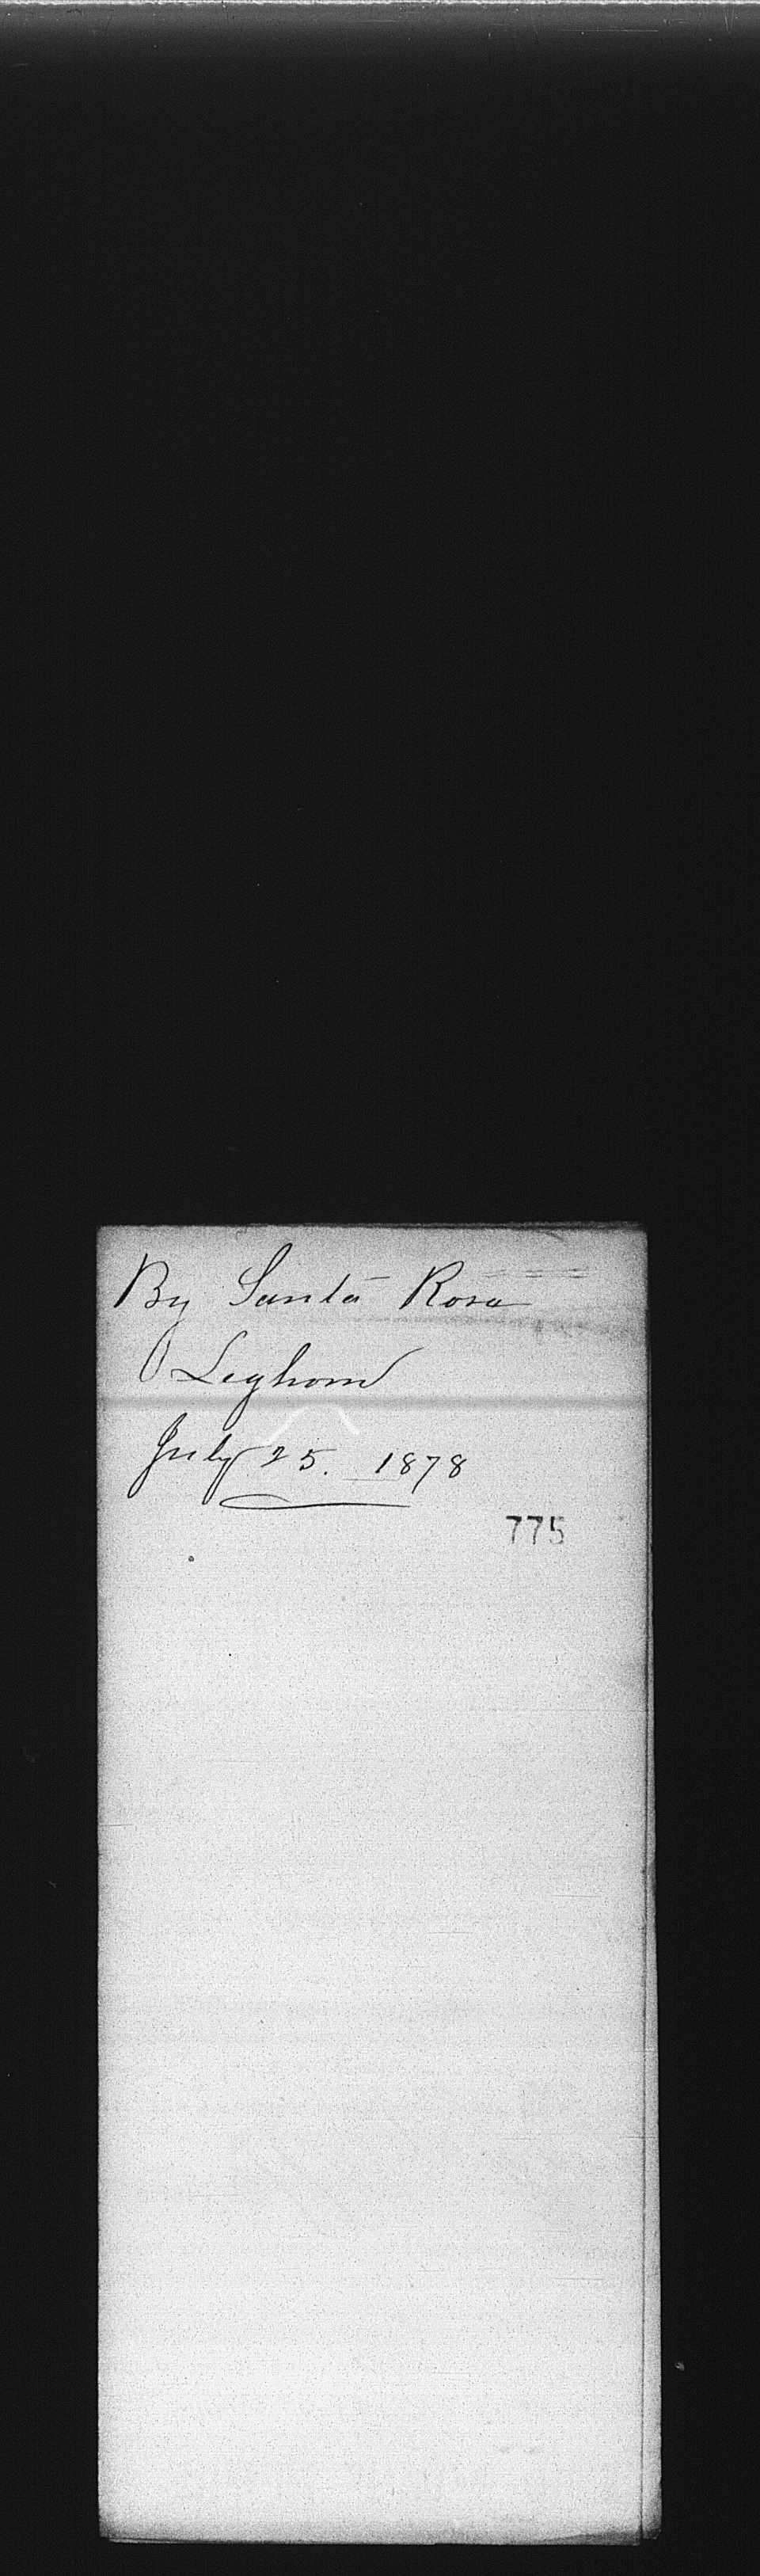 By Santa Rosa
Leghorn
July 25. 1878
775